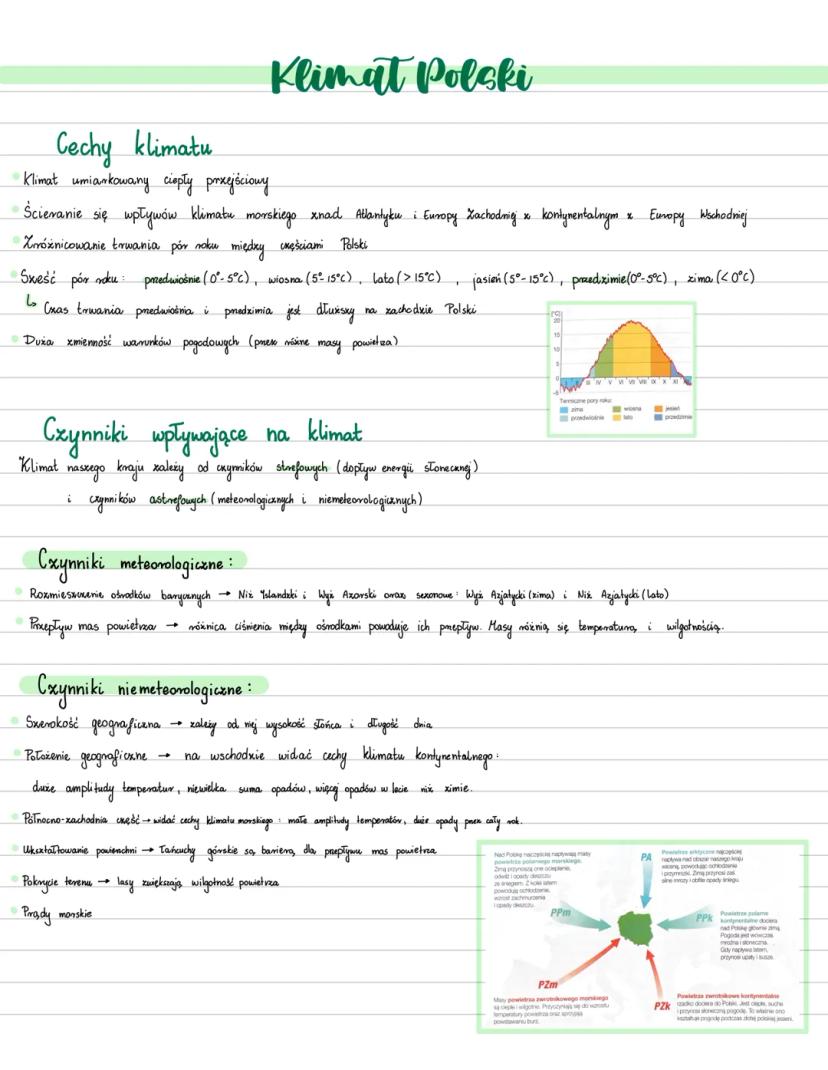 Klimat Polski
Cechy klimatu
Klimat umiarkowany ciepły przejściowy
Ścieranie się wpływów klimatu morskiego znad Atlantyku i Europy Zachodniej z kontynentalnym z Europy Wschodniej
Zróżnicowanie trwania pór roku między częściami Polski
Sześć pór roku: przedwiośnie (0°-5°C), wiosna (5°-15°C), lato (>15°C), jasień (5°-15°C), przedzimie (0°-5°C), zima (<0°C)
↳ Czas trwania przedwiośnia i przedzimia jest dłuższy na zachodzie Polski
Duża zmienność warunków pogodowych (przez różne masy powietrza)
[°C]
20
15
10
5
0
-5
III IV V VI VII VIII IX X XI
Termiczne pory roku:
zima wiosna jesień
przedwiośnie lato przedzimie
Czynniki wpływające na klimat
Klimat naszego kraju zależy od czynników strefowych (dopływ energii słonecznej)
i czynników astrefowych (meteorologicznych i niemeteorologicznych)
Czynniki meteorologiczne:
Rozmieszczenie ośrodków barycznych → Niż Islandzki i Wyż Azorski oraz sezonowe: Wyż Azjatycki (zima) i Niż Azjatycki (lato)
Przepływ mas powietrza → różnica ciśnienia między ośrodkami powoduje ich przepływ. Masy różnią się temperaturą i wilgotnością.
Czynniki niemeteorologiczne:
Szerokość geograficzna → zależy od niej wysokość słońca i długość dnia
Położenie geograficzne → na wschodzie widać cechy klimatu kontynentalnego:
duże amplitudy temperatur, niewielka suma opadów, więcej opadów w lecie niż zimie.
Północno-zachodnia część → widać cechy klimatu morskiego: małe amplitudy temperatur, duże opady przez cały rok.
Ukształtowanie powierzchni → Łańcuchy górskie są barierą dla przepływu mas powietrza
Pokrycie terenu → lasy zwiększają wilgotność powietrza
Prądy morskie
Nad Polskę najczęściej napływają masy
powietrza polarnego morskiego.
Zimą przynoszą one ocieplenie,
odwilż i opady deszczu
ze śniegiem. Z kolei latem
powodują ochłodzenie,
wzrost zachmurzenia
i opady deszczu.
PPm
PA
Powietrze arktyczne najczęściej
napływa nad obszar naszego kraju
wiosną, powodując ochłodzenie
i przymrozki. Zimą przynosi zaś
silne mrozy i obfite opady śniegu.
PPk
Powietrze polarne
kontynentalne dociera
nad Polskę głównie zimą.
Pogoda jest wówczas
mroźna i słoneczna.
Gdy napływa latem,
przynosi upały i susze.
PZm
Masy powietrza zwrotnikowego morskiego
są ciepłe i wilgotne. Przyczyniają się do wzrostu
temperatury powietrza oraz sprzyjają
powstawaniu burz.
PZk
Powietrze zwrotnikowe kontynentalne
rzadko dociera do Polski. Jest ciepłe, suche
i przynosi słoneczną pogodę. To właśnie ono
kształtuje pogodę podczas złotej polskiej jesieni.